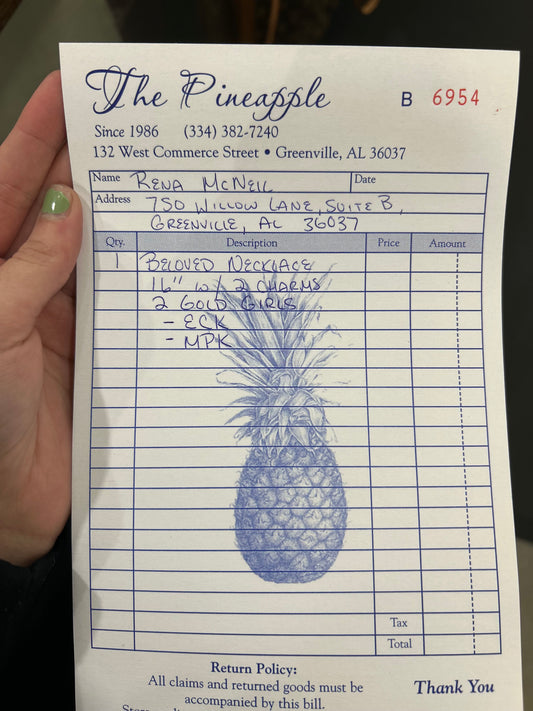 The Pineapple
B 6954
Since 1986 (334) 382-7240
132 West Commerce Street • Greenville, AL 36037
Name RENA MCNEIL Date
Address 750 WILLOW LANE, SUITE B,
GREENVILLE, AL 36037
Qty. Description Price Amount
1 BELOVED NECKLACE
16" w/ 2 CHARMS
2 GOLD GIRLS
- ECK
- MPK
Tax
Total
Return Policy:
All claims and returned goods must be
accompanied by this bill.
Thank You